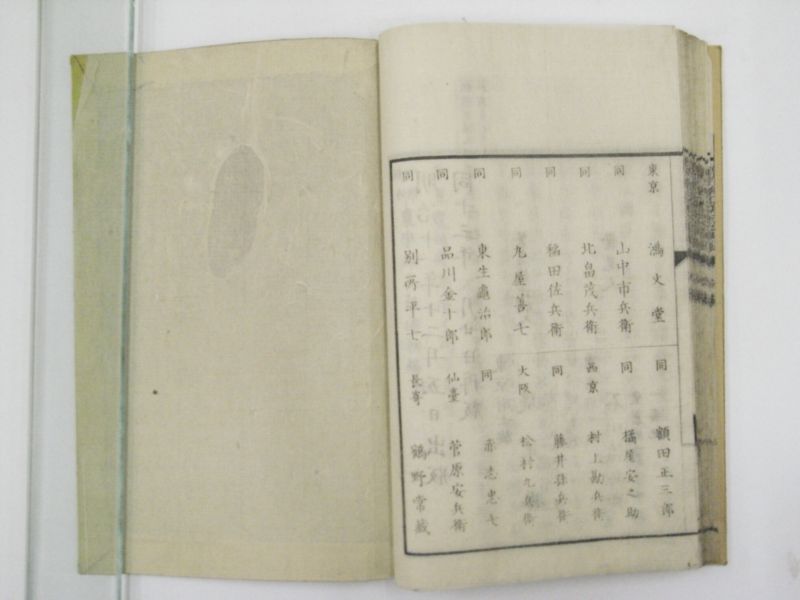 東京 鴻文堂
同 山中市兵衛
同 北畠茂兵衛
同 稲田佐兵衛
同 丸屋善七
同 東生亀治郎
同 品川金十郎
同 別所平七
同 額田正三郎
同 橘屋安之助
西京 村上勘兵衛
同 藤井孫兵衛
大阪 松村九兵衛
同 赤志忠七
仙臺 菅原安兵衛
長崎 鶴野常蔵